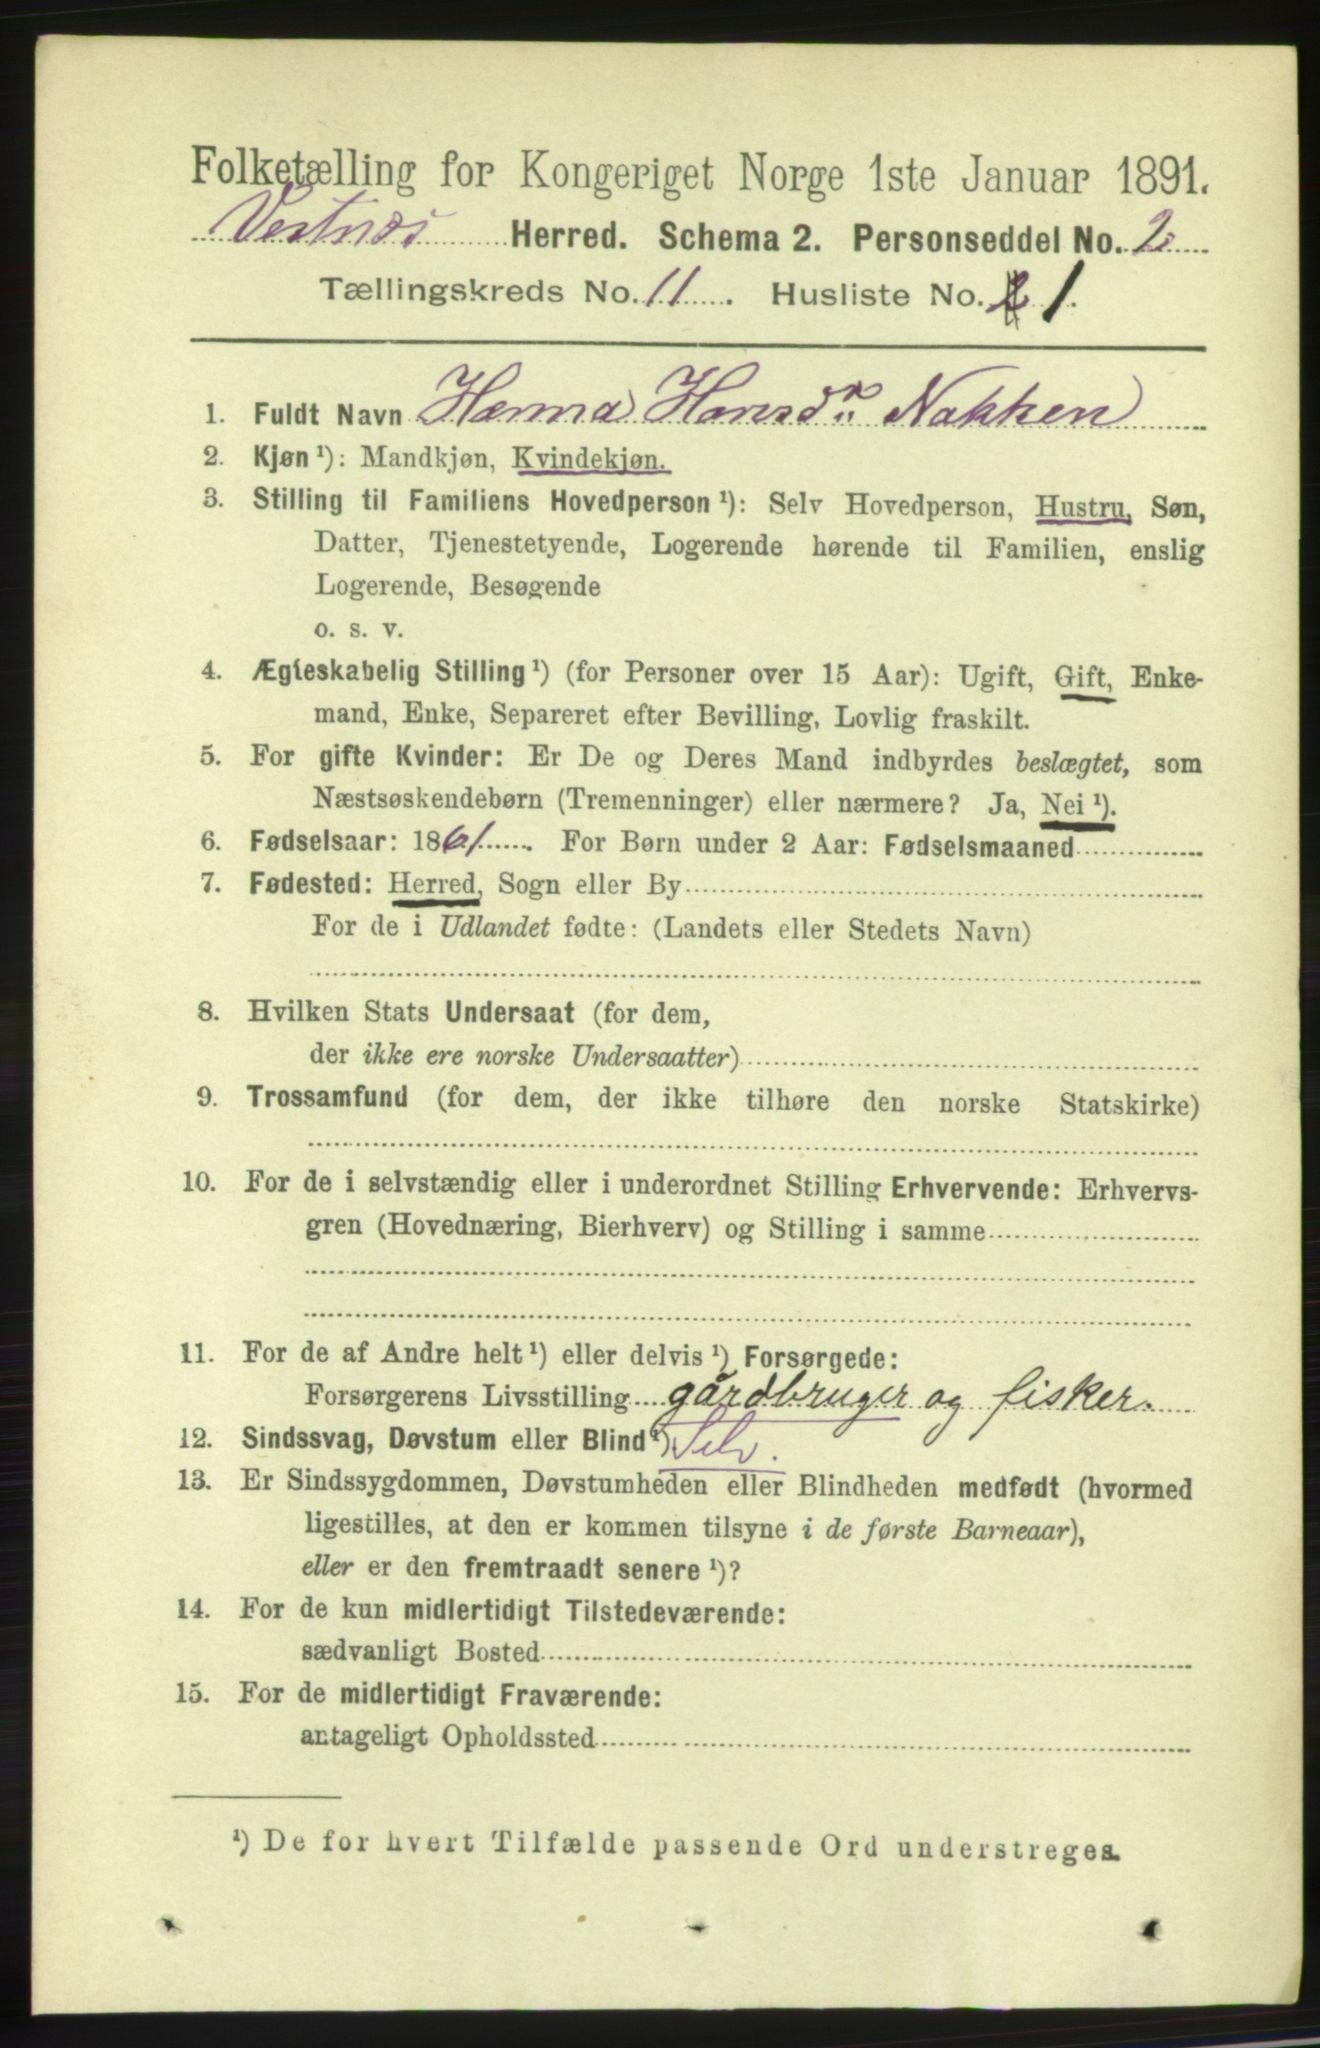 Folketælling for Kongeriget Norge 1ste Januar 1891.
Vestnæs Herred. Schema 2. Personseddel No. 2
Tællingskreds No. 11. Husliste No. 1.
1. Fuldt Navn Hanna Hansdr. Nakken
2. Kjøn ¹): Mandkjøn, Kvindekjøn.
3. Stilling til Familiens Hovedperson ¹): Selv Hovedperson, Hustru, Søn,
Datter, Tjenestetyende, Logerende hørende til Familien, enslig
Logerende, Besøgende
o. s. v.
4. Ægteskabelig Stilling ¹) (for Personer over 15 Aar): Ugift, Gift, Enke-
mand, Enke, Separeret efter Bevilling, Lovlig fraskilt.
5. For gifte Kvinder: Er De og Deres Mand indbyrdes beslægtet, som
Næstsøskendebørn (Tremenninger) eller nærmere? Ja, Nei ¹).
6. Fødselsaar: 1861. For Børn under 2 Aar: Fødselsmaaned
7. Fødested: Herred, Sogn eller By
For de i Udlandet fødte: (Landets eller Stedets Navn)
8. Hvilken Stats Undersaat (for dem,
der ikke ere norske Undersaatter)
9. Trossamfund (for dem, der ikke tilhøre den norske Statskirke)
10. For de i selvstændig eller i underordnet Stilling Erhvervende: Erhvervs-
gren (Hovednæring, Bierhverv) og Stilling i samme
11. For de af Andre helt ¹) eller delvis ¹) Forsørgede:
Forsørgerens Livsstilling gårdbruger og fisker.
12. Sindssvag, Døvstum eller Blind ¹) Selv.
13. Er Sindssygdommen, Døvstumheden eller Blindheden medfødt (hvormed
ligestilles, at den er kommen tilsyne i de første Barneaar),
eller er den fremtraadt senere ¹)?
14. For de kun midlertidigt Tilstedeværende:
sædvanligt Bosted
15. For de midlertidigt Fraværende:
antageligt Opholdssted
¹) De for hvert Tilfælde passende Ord understreges.